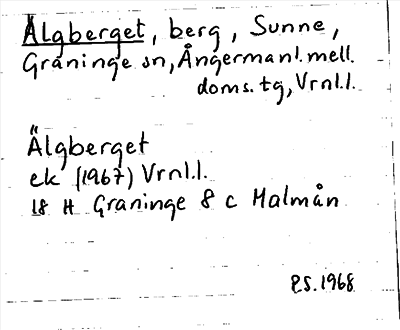 Älgberget, berg, Sunne,
Graninge sn, Ångermanl. mell.
doms. tg, Vrnl.l.
Älgberget
ek (1967) Vrnl.l.
18 H Graninge 8 c Malmån
P.S. 1968